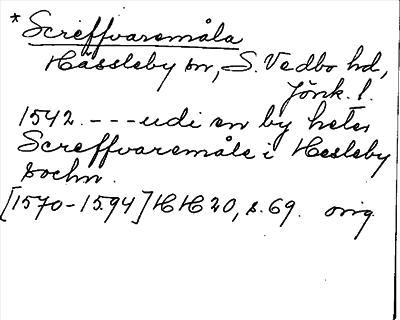 * Screffvaremåla
Hässleby sn, S. Vedbo hd,
Jönk. l.
1542. --- udi en by heter
Screffvaremåle i Hesleby
sochn.
[1570-1594] HH 20, s. 69. orig.